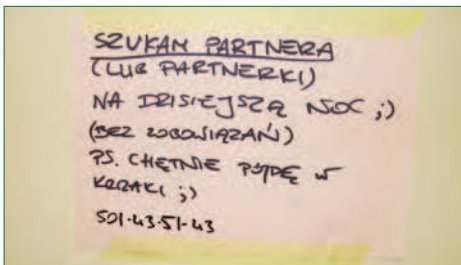 SZUKAM PARTNERA
(LUB PARTNERKI)
NA DZISIEJSZĄ NOC ;)
(BEZ ZOBOWIĄZAŃ)
PS. CHĘTNIE PÓJDĘ W
KRZAKI ;)
501-43-51-43